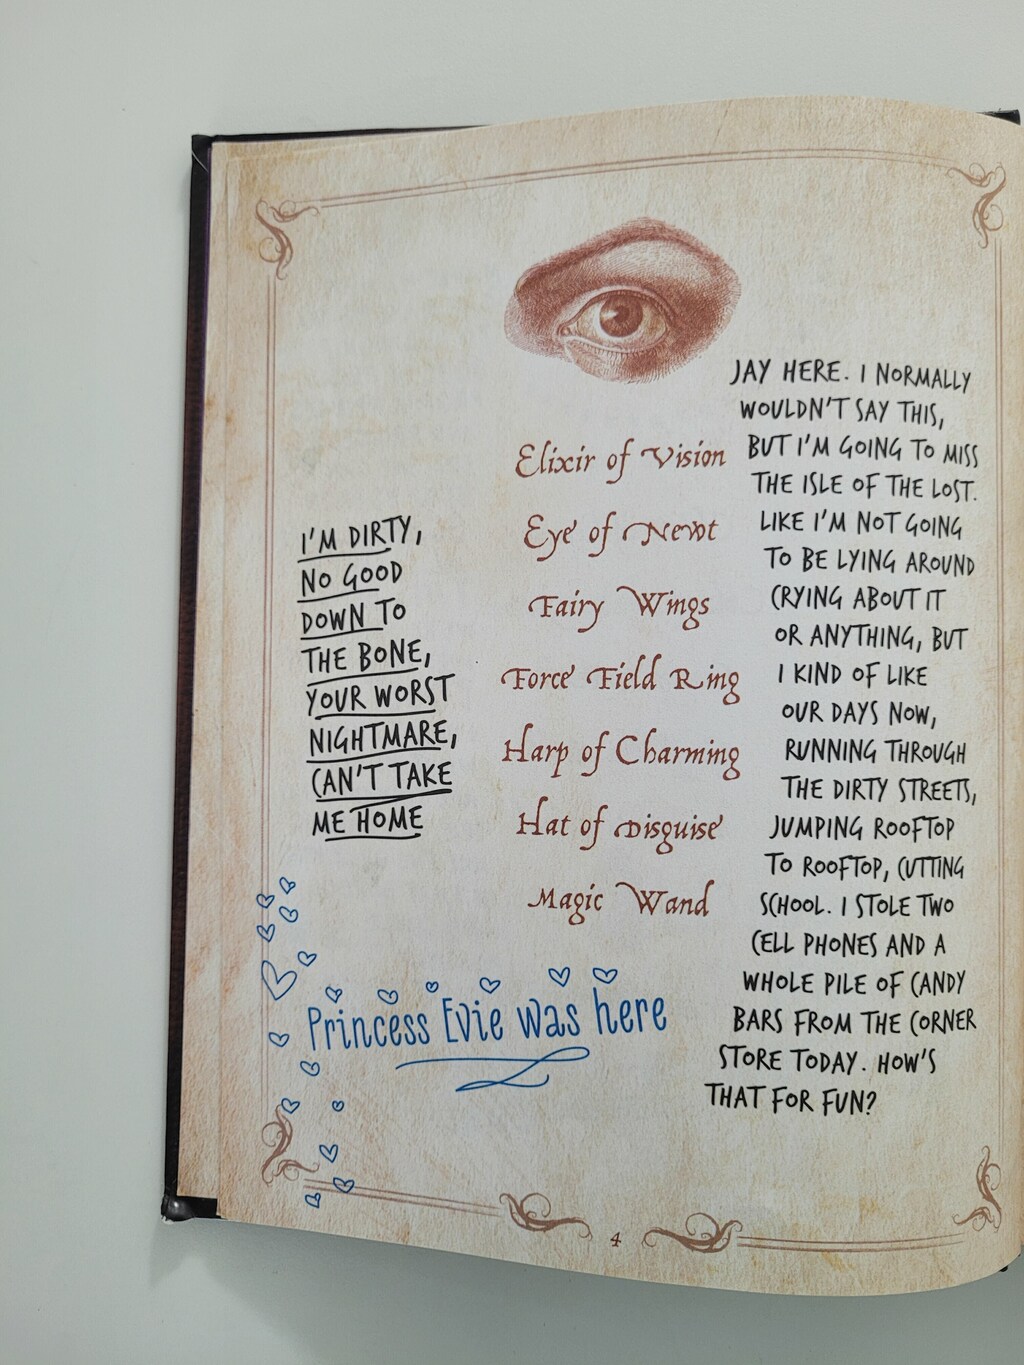 JAY HERE. I NORMALLY
WOULDN'T SAY THIS,
BUT I'M GOING TO MISS
THE ISLE OF THE LOST.
LIKE I'M NOT GOING
TO BE LYING AROUND
CRYING ABOUT IT
OR ANYTHING, BUT
I KIND OF LIKE
OUR DAYS NOW,
RUNNING THROUGH
THE DIRTY STREETS,
JUMPING ROOFTOP
TO ROOFTOP, CUTTING
SCHOOL. I STOLE TWO
CELL PHONES AND A
WHOLE PILE OF CANDY
BARS FROM THE CORNER
STORE TODAY. HOW'S
THAT FOR FUN?
Elixir of Vision
Eye of Newt
Fairy Wings
Force Field Ring
Harp of Charming
Hat of Disguise
Magic Wand
I'M DIRTY,
NO GOOD
DOWN TO
THE BONE,
YOUR WORST
NIGHTMARE,
CAN'T TAKE
ME HOME
Princess Evie was here
4